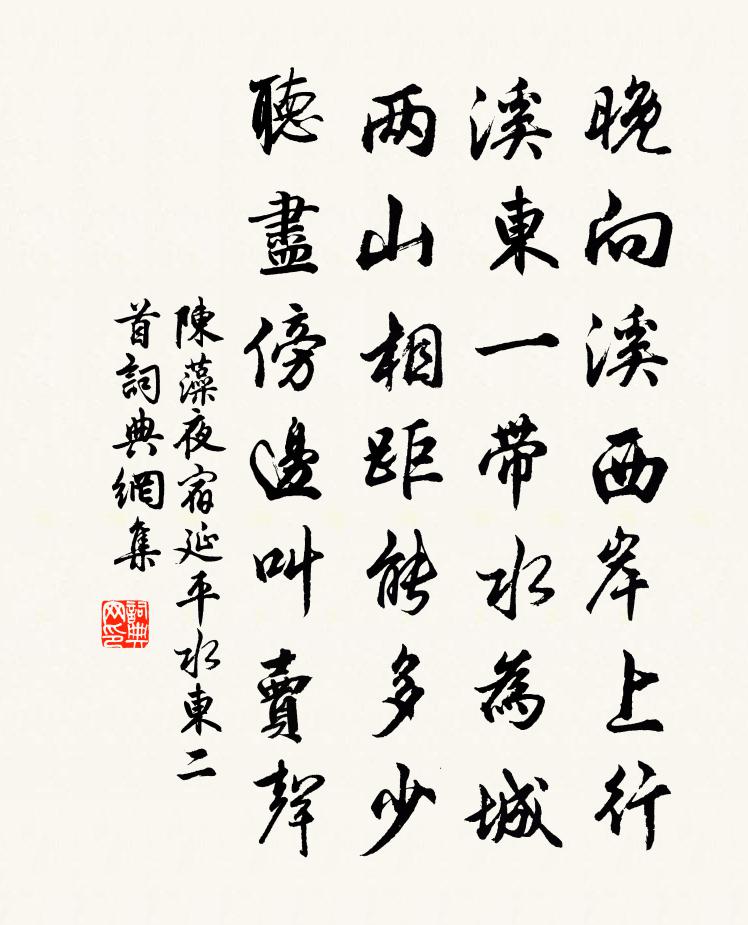 晚向溪西岸上行
溪東一帶水為城
两山相距能多少
聽盡傍邊叫賣聲
陳藻夜宿延平水東二
首詞典網集
詞典網印